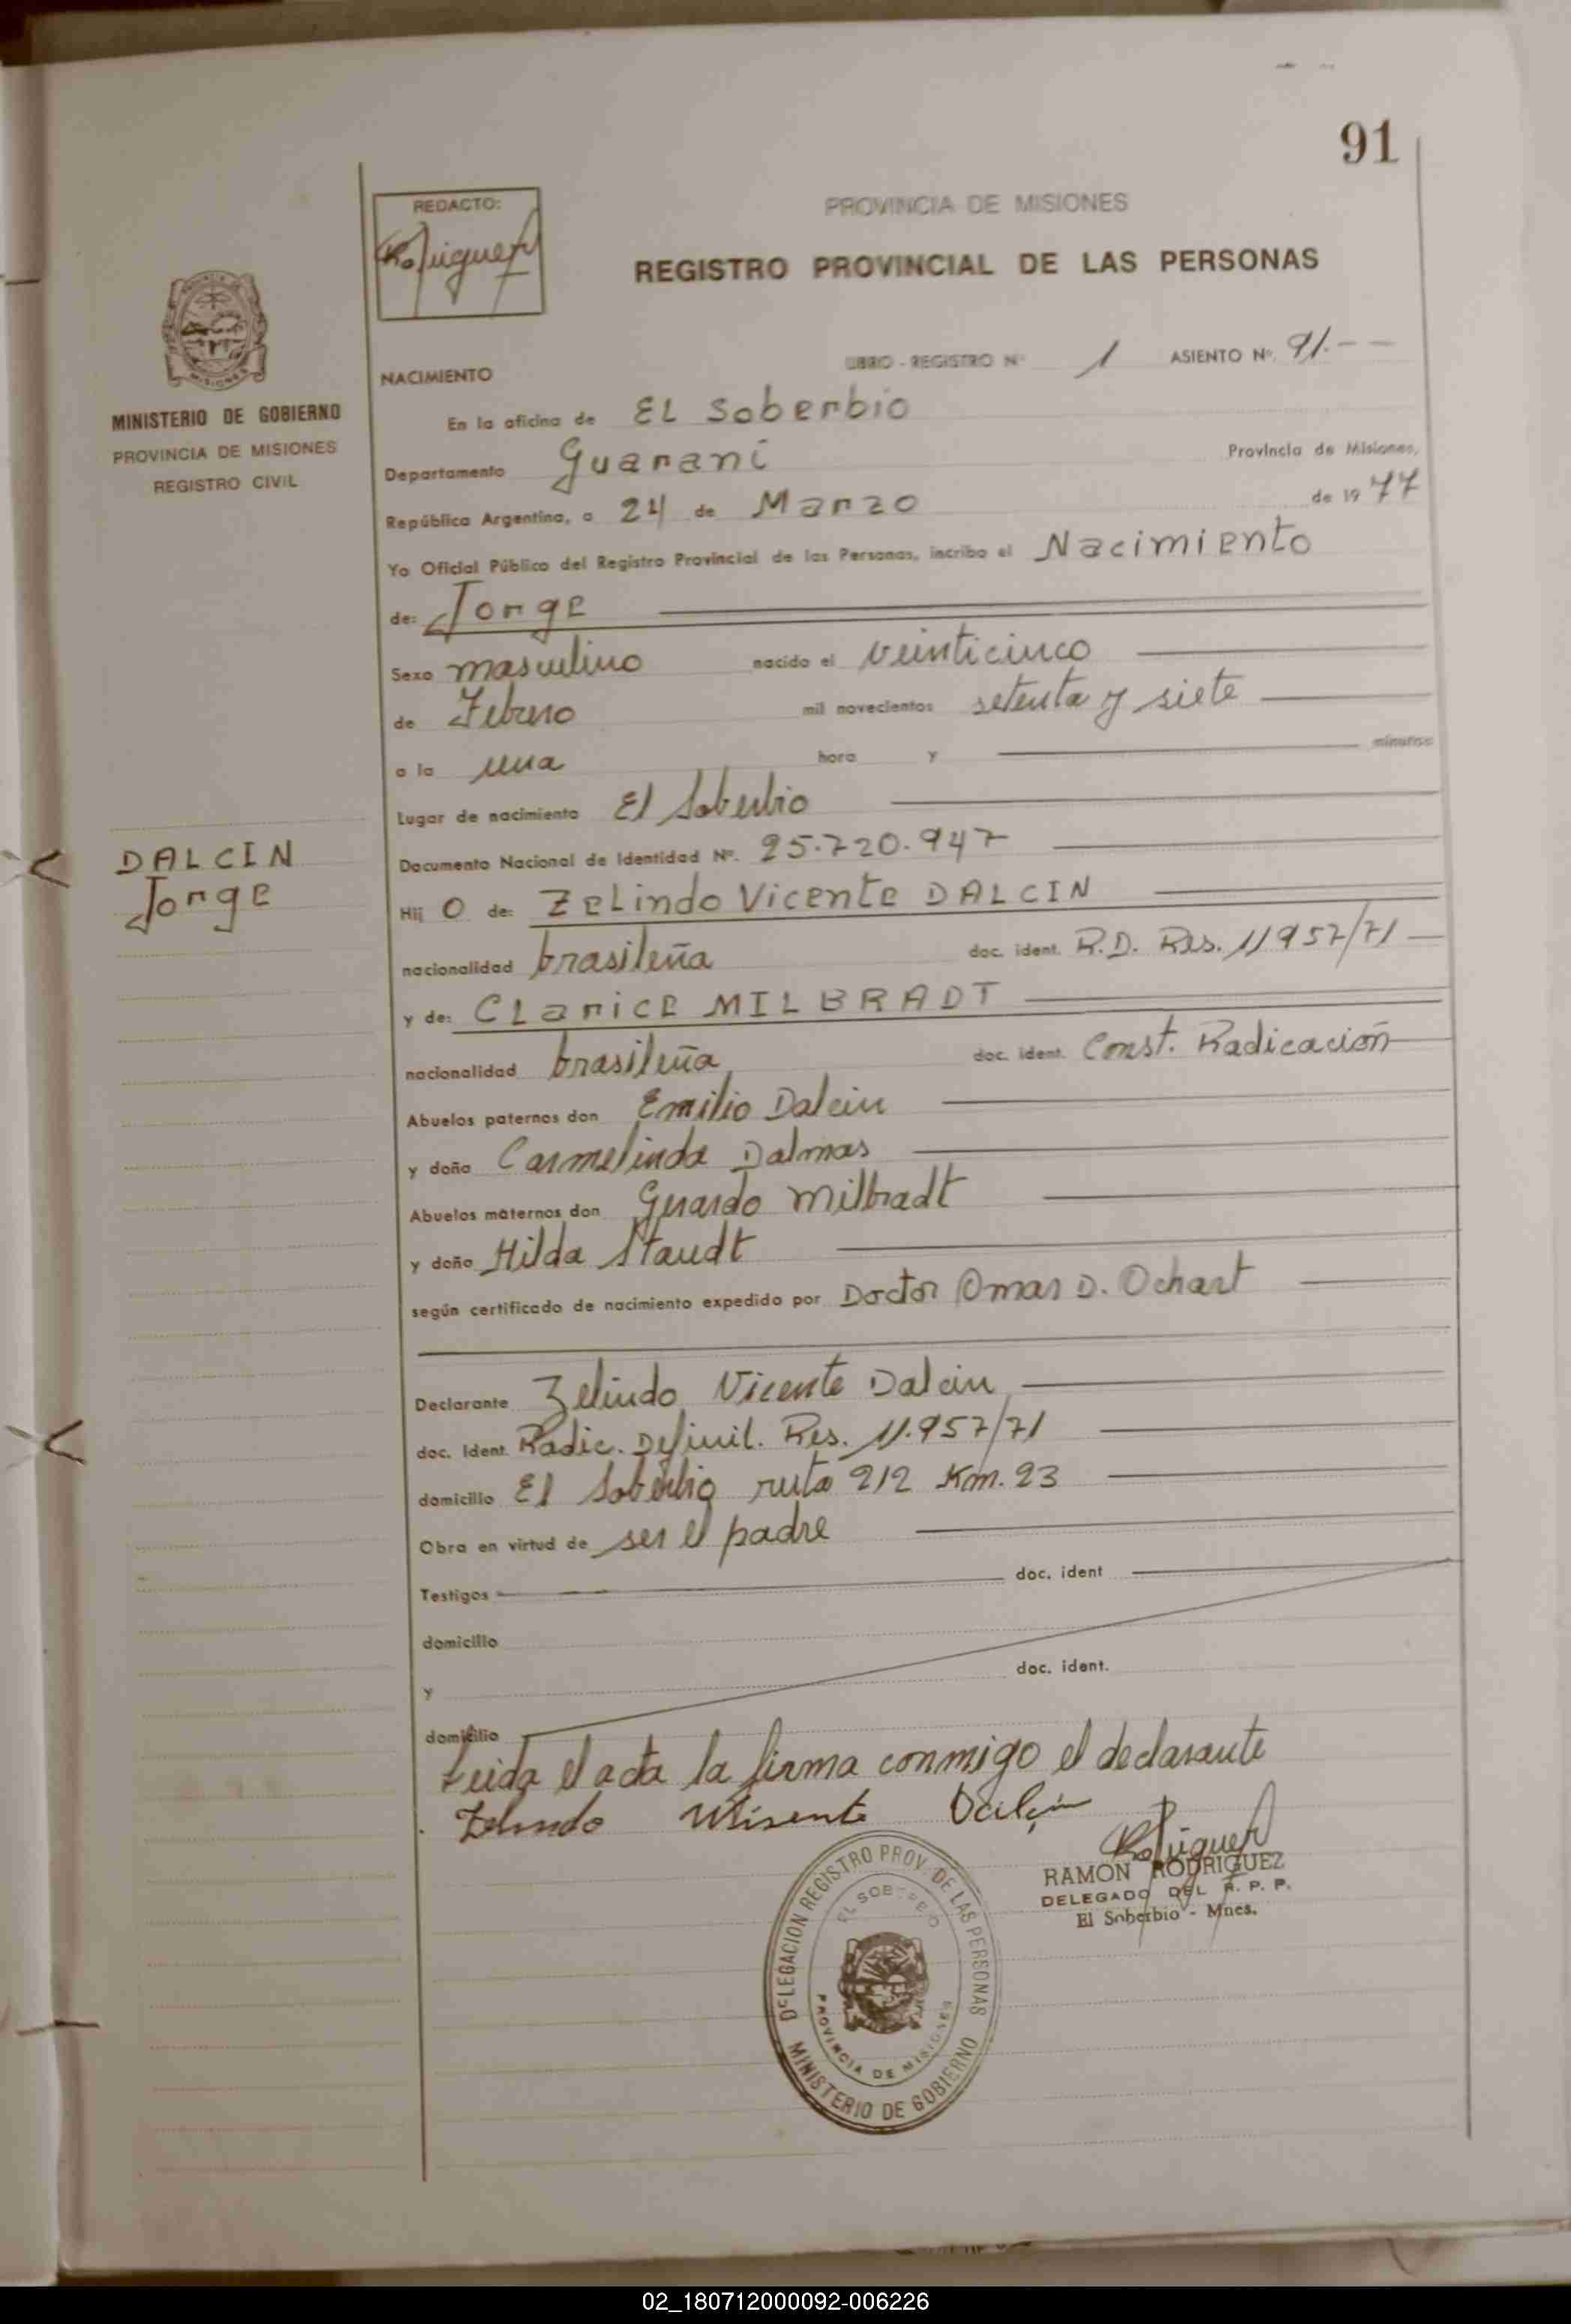 91
REDACTO:
PROVINCIA DE MISIONES
REGISTRO PROVINCIAL DE LAS PERSONAS
MINISTERIO DE GOBIERNO
PROVINCIA DE MISIONES
REGISTRO CIVIL
LIBRO - REGISTRO Nº 1 ASIENTO Nº. 91.--
NACIMIENTO
En la oficina de EL Soberbio
Departamento Guaraní Provincia de Misiones,
República Argentina, a 24 de Marzo de 1977
Yo Oficial Público del Registro Provincial de las Personas, incribo el Nacimiento
de: Jorge
Sexo masculino nacido el veinticinco
de Febrero mil novecientos setenta y siete
a la una hora y minutos
Lugar de nacimiento El Soberbio
DALCIN
Jorge
Documento Nacional de Identidad Nº. 25.720.947
Hij O de: ZeLindo Vicente DALCIN
nacionalidad brasileña doc. ident. R.D. Res. 11957/71
y de: CLarice MILBRADT
nacionalidad brasileña doc. ident. Const. Radicación
Abuelos paternos don Emilio Dalcin
y doña Carmelinda Dalmas
Abuelos maternos don Gerardo Milbradt
y doña Hilda Staudt
según certificado de nacimiento expedido por Doctor Omar D. Ochart
Declarante Zelindo Vicente Dalcin
doc. Ident. Radic. Definit. Res. 11.957/71
domicilio El Soberbio ruta 212 Km. 23
Obra en virtud de ser el padre
Testigos doc. ident
domicilio
y doc. ident.
domicilio
Leida el acta la firma conmigo el declarante
Zelindo Visente Dalçin
RAMON RODRIGUEZ
DELEGADO DEL R. P. P.
El Soberbio - Mnes.
DELEGACION REGISTRO PROV. DE LAS PERSONAS
EL SOBERBIO
PROVINCIA DE MISIONES
MINISTERIO DE GOBIERNO
02_180712000092-006226